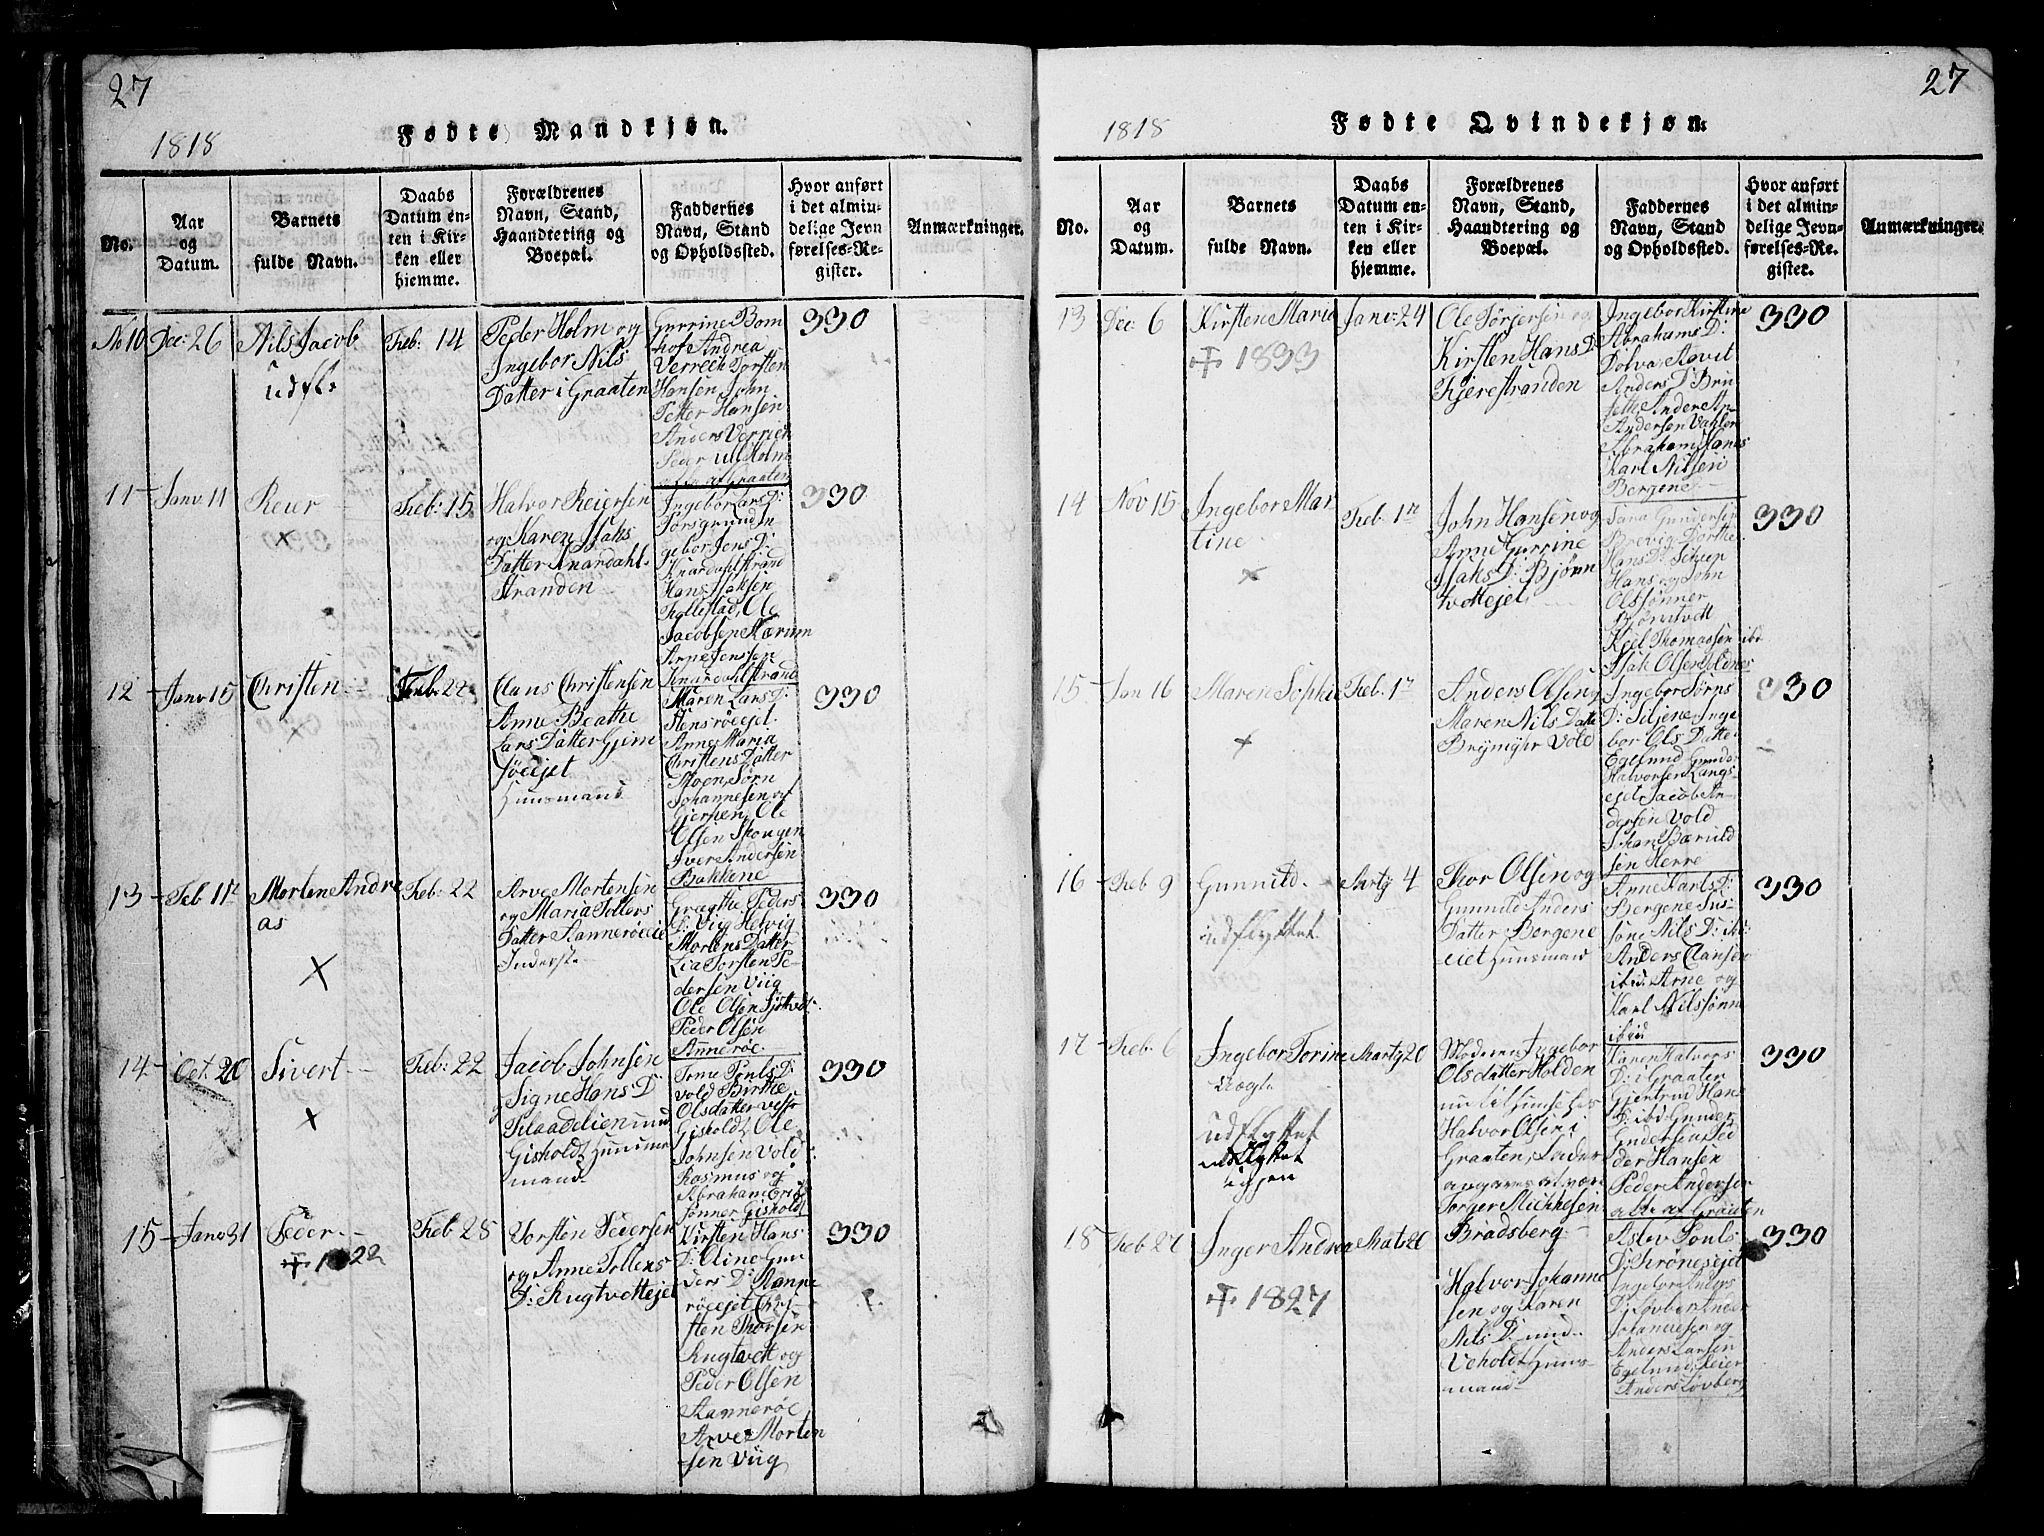 27
1818
Fødte Mandkjøn.
No.
Aar
og
Datum.
Barnets
fulde Navn.
Daabs
Datum en-
ten i Kir-
ken eller
hjemme.
Forældrenes
Navn, Stand,
Haandtering og
Boepæl.
Faddernes
Navn, Stand
og Opholdssted.
Hvor anført
i det almin-
delige Jevn
førelses-Re-
gister.
Anmærkninger.
No 10
Dec: 26
Nils Jacob
udfl.
Feb: 14
Peder Holm og
Ingebor Nils
Datter i Graaten
Gurrine Bom
hof Andrea
Verrech Torsten
Hansen John
Petter Hansen
Anders Verrich
Peder Holm
af Graaten
330
11
Janv 11
Reier
×
Feb: 15
Halvor Reiersen
og Karen Isaks
Datter Knardahl-
stranden
Ingebor Lars D:
Porsgrund In
gebor Jens D:
Knardahlstrand
Hans Isaksen
Follestad, Ole
Jacobsen Kærum
Arne Jenssen
Knardahlstrand
330
12
Janv 15
Christen
×
Feb: 22
Claus Christensen
Anne Beathe
Lars Datter Gjem
søeejet
Huusmand
Maren Lars D:
Stensrøeejet
Anne Maria
Christens Datter
Moen, Sørn
Johannesen
Gjerpen, Ole
Olsen Skougen
Iver Andersen
Bakkene
330
13
Feb 11
Morten Andre
as
×
Feb: 22
Arve Mortensen
og Maria Tollevs
Datter Hannerøeeie
Inderste
Gragthe Peders
D: Viig Helvig
Mortens Datter
Lia Torsten Pe-
dersen Viig
Ole Olsen
Peder Olsen
Annerøe
330
14
Oct. 20
Sivert
×
Feb: 22
Jacob Johnsen
og Signe Hans D:
Klaadelien und
Gisholdt Huusme
mand
Povls D:
vold Birthe
Olsdatter
Gisholdt, Ole
Johnsen vold
Rasmus og
Abraham Erich
sønner Gisholdt
330
15
Janv 31
Peder
+ 1822
Feb 28
Torsten Pedersen
og Anne Tollevs
D: Rugtvetteejet
Kirsten Hans
D: Aline Gun
ders D: Hanne
røeejet Chri-
sten Thorsen
Rugtvett og
Peder Olsen
Hannerøe
Arve Morten
sen Viig
330
27
1818
Fødte Qvindekjøn.
No.
Aar
og
Datum.
Barnets
fulde Navn.
Daabs
Datum en-
ten i Kir-
ken eller
hjemme.
Forældrenes
Navn, Stand,
Haandtering og
Boepæl.
Faddernes
Navn, Stand
og Opholdssted.
Hvor anført
i det almin-
delige Jevn-
førelses-Re-
gister.
Anmærkninger.
13
Dec: 6
Kirsten Maria
+ 1833
Janv: 24
Ole Jørgensen og
Kirsten Hans D:
Kjerestranden
Ingebor Kirstine
Abrahams D:
Dolva
Anders D:
Anders
Andersen
Abraham Hans
Karl Nilsen
Bergene
330
14
Nov 15
Ingebor Mar
tine
×
Feb: 1
John Hansen og
Anne Gurrine
Isaks D: Bjørn
tvetteejet
Gundersen
Brevig Dorthe
Hans D:
Hans og John
Olssønner
Bjørntvett
Kjel Thomassen ibd
Isak Olsen
330
15
Jan 16
Maren Sophie
×
Feb: 1
Anders Olsen og
Maren Nils Datte
Vold
Ingebor Sørns
D: Siljene Inge
bor Ols Datte
Eqelund Gundo
Halvorsen Langs-
ejet Jacob An-
dersen Vold
Johan
sen Herre
330
16
Feb 9
Gunnild
udflyttet
Marty 4
Thor Olsen og
Gunnild Anders
Datter Borgene
eiet Huusmand
Anne Karls D:
Bergene Sus-
Nils D: ibd
Anders Clausen
ibid. Arne og
Karl Nilssønne
ibid
330
17
Feb: 6
Ingebor Torine
Uægte
udflyttet
udflyttet
igjen
Marty 20
Moderen Ingebor
Olsdatter Holden
nu til Huuse hos
Halvor Olsen i
Graaten, Leider
angaves at være
Torger Michkelsen
Bradsberg
Karen Halvors
D: i Graaten
Gjertrud Hans
D: ibd Gunder
Gundersen Ped
der Hansen
Peder Andersen
alle af Graaten
330
18
Feb 27
Inger Andrea
+ 1827
Mart: 20
Halvor Johanne
sen og Karen
Nils D: und
Veholdt Huus
mand
Aslev Povls
D: Krøneseiet
Ingebor Anders
D: Løvber Ander
Johannesen og
Anders Larsen
Eqelund, Reier
Anders Løvberg
330